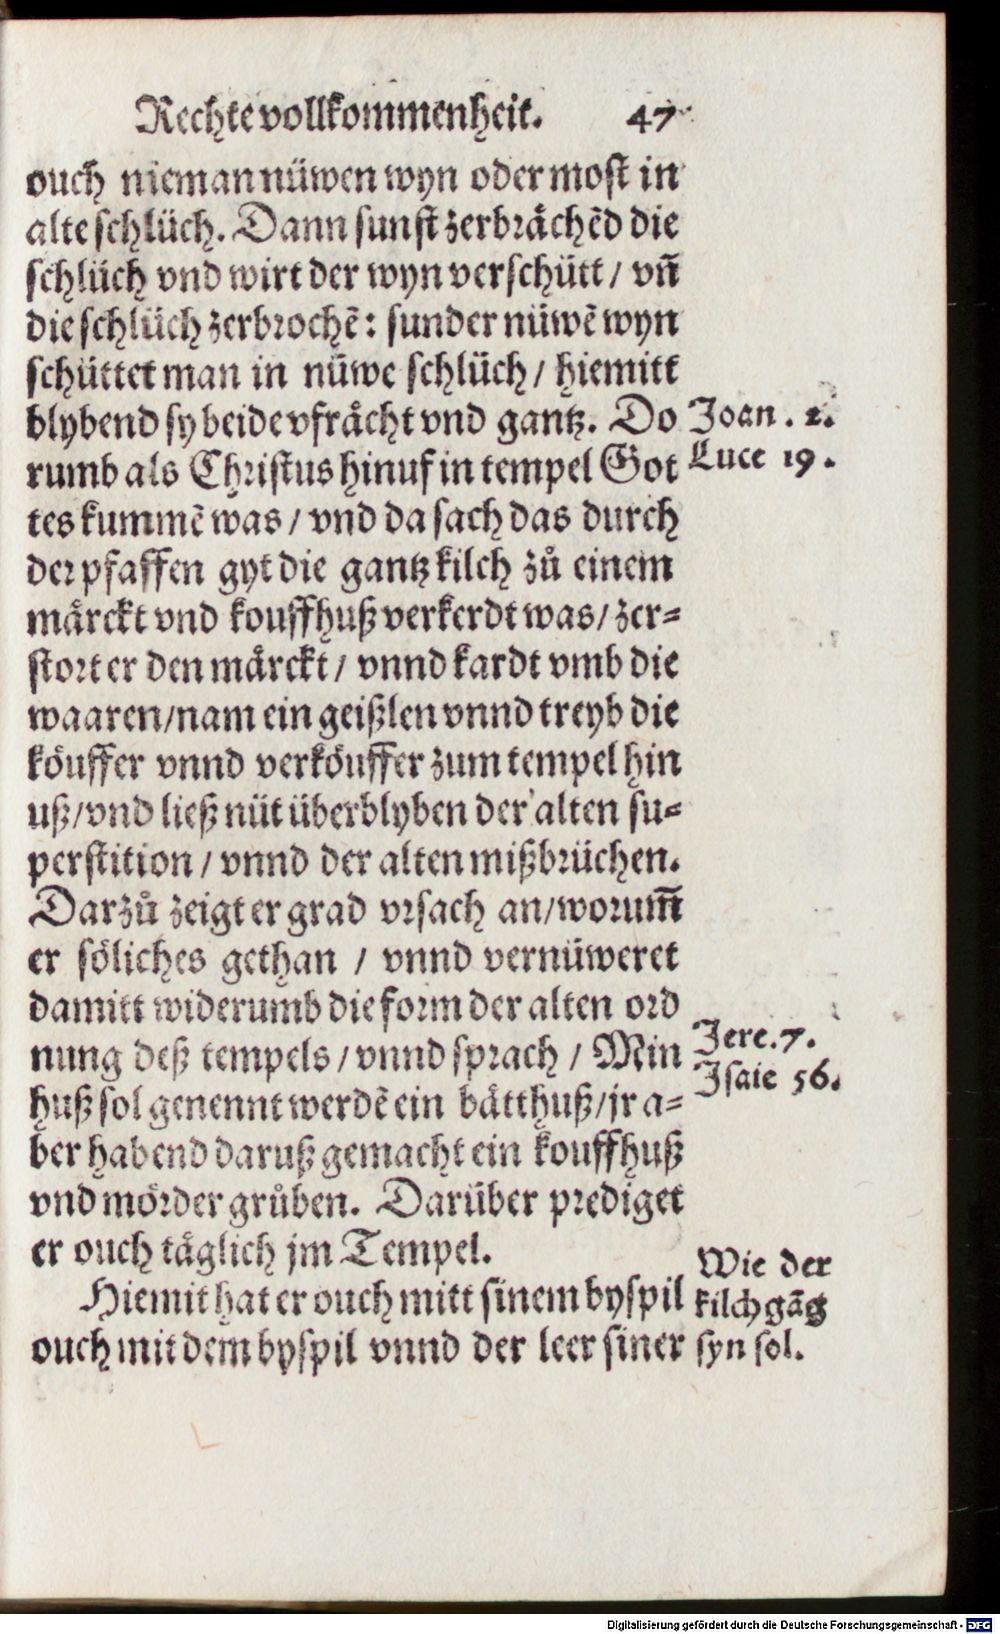 Rechte vollkommenheit. 47
ouch nieman nüwen wyn oder most in
alte schlüch. Dann sunst zerbråchẽd die
schlüch vnd wirt der wyn verschütt / vñ
die schlüch zerbrochẽ: sunder nüwẽ wyn
schüttet man in nüwe schlüch / hiemitt
blybend sy beide vfråcht vnd gantz. Do
rumb als Christus hinuf in tempel Got
tes kummẽ was / vnd da sach das durch
der pfaffen gyt die gantz kilch zů einem
mårckt vnd kouffhuß verkerdt was / zer=
stort er den mårckt / vnnd kardt vmb die
waaren / nam ein geißlen vnnd treyb die
köuffer vnnd verköuffer zum tempel hin
uß / vnd ließ nüt überblyben der alten su=
perstition / vnnd der alten mißbrüchen.
Darzů zeigt er grad vrsach an / worum̃
er söliches gethan / vnnd vernüweret
damitt widerumb die form der alten ord
nung deß tempels / vnnd sprach / Min
huß sol genennt werdẽ ein båtthuß / jr a=
ber habend daruß gemacht ein kouffhuß
vnd mörder grůben. Darüber prediget
er ouch täglich jm Tempel.
Hiemit hat er ouch mitt sinem byspil
ouch mit dem byspil vnnd der leer siner
Joan. 2.
Luce 19.
Jere. 7.
Isaie 56.
Wie der
kilchgãg
syn sol.
Digitalisierung gefördert durch die Deutsche Forschungsgemeinschaft - DFG